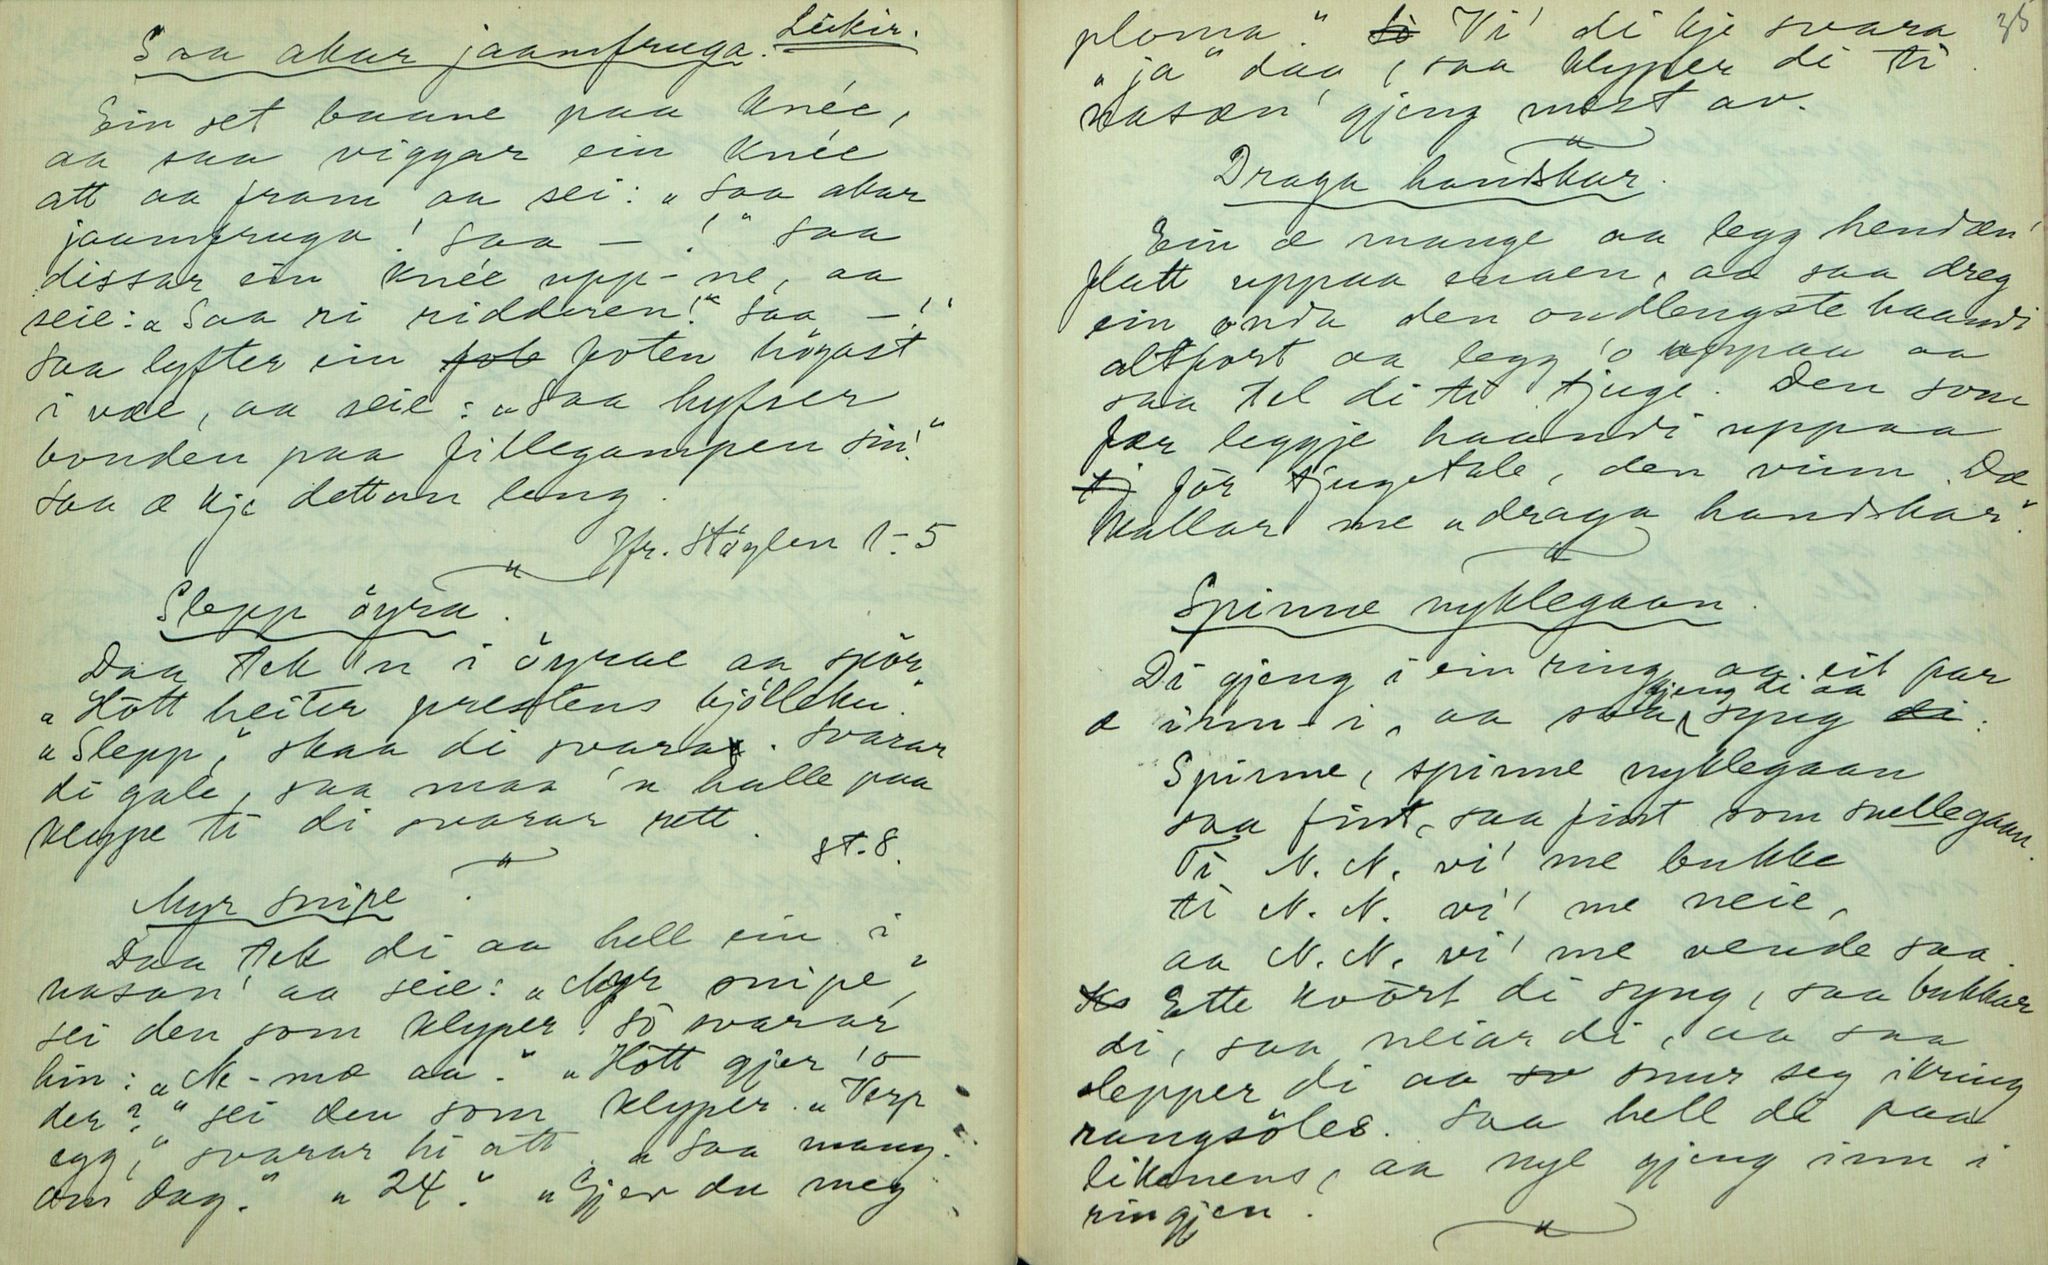 Leikir.
Saa akar jaamfruga.
Ein set baane paa knée,
aa saa viggar ein knée
att aa fram aa sei: „Saa akar
jaamfruga! Saa — !" Saa
dissar ein knée upp-ne, aa
seie: „Saa ri ridderen!" Saa — !"
Saa lyfter ein fote foten högast
i væe, aa seie: „Saa hyfser
bonden paa fillegampen sin!"
Saa æ kje dettan leng.
Jfr. Stöylen 1-5
Slepp öyra.
Daa tek 'n i öyrae aa spör
„Hött heiter prestens bjölleku."
„Slepp," skaa di svara. Svarar
di gale, saa maa 'n halle paa
klype ti di svarar rett.
St. 8.
Myr snipe.
Daa tek di aa hell ein i
nasan' aa seie: „Myr snipe",
sei den som klyper. Sö svarar
hin: „Me-mæ aa." „Hött gjer 'o
der?" sei den som klyper. „Verp
egg," svarar hi att. „Saa mang
om dag." „24." „Gjev du meg
35
ploma." Sö Vi' di kje svara
„ja" daa, saa klyper di ti
nasæn' gjeng mest av.
Draga handskar.
Ein æ mange aa legg hendæn'
flatt uppaa enaen, aa saa dreg
ein unda den ondlengste haandi
altfort aa legg 'o uppaa aa
saa tel di ti tjuge. Den som
fær leggje haandi uppaa
tj för tjugetale, den vinn. Dæ
kallar me „draga handskar".
Spinne nyklegaan.
Di gjeng i ein ring, aa eit par
gjeng di aa
æ inn-i, aa saa syng di.
Spinne, spinne nyklegaan
saa fint, saa fint som snellegaan.
Ti N. N. vi' me bukke
ti N. N. vi' me neie,
aa N. N. vi' me vende saa.
Ko Ette kvört di syng, saa bukkar
di, saa neiar di, aa saa
slepper di aa sv snur seg ikring
rangsöles. Saa hell di paa
likenens, aa nye gjeng inn i
ringjen.